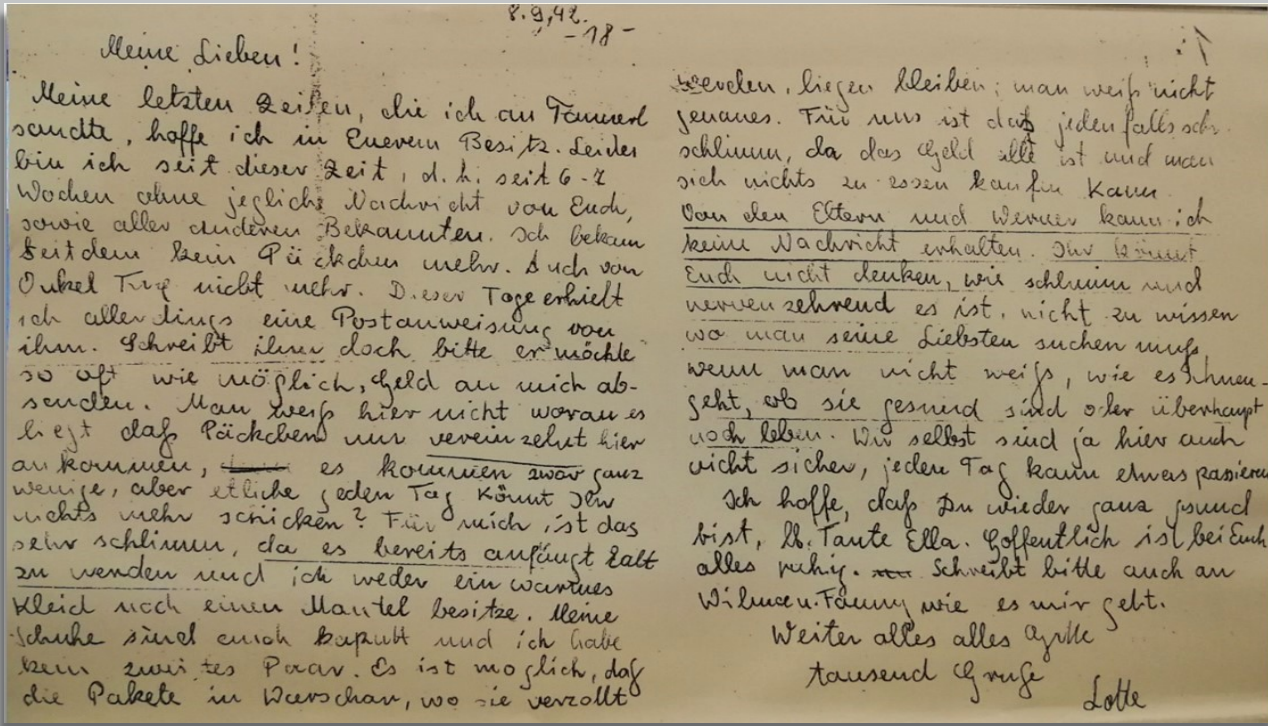 8.9.42.
-18-
Meine Lieben!
Meine letzten Zeilen, die ich an Tannerl
sandte, hoffe ich in Euerem Besitz. Leider
bin ich seit dieser Zeit, d.h. seit 6-7
Wochen ohne jegliche Nachricht von Euch,
sowie aller anderen Bekannten. Ich bekam
seitdem kein Päckchen mehr. Auch von
Onkel nicht mehr. Dieser Tage erhielt
ich allerdings eine Postanweisung von
ihm. Schreibt ihm doch bitte er möchte
so oft wie möglich, Geld an mich ab-
senden. Man weiß hier nicht woran es
liegt daß Päckchen nur vereinzehnt hier
ankommen, es kommen zwar ganz
wenige, aber etliche jeden Tag Könnt Ihr
nichts mehr schicken? Für mich ist das
sehr schlimm, da es bereits anfängt kalt
zu werden und ich weder ein warmes
Kleid noch einen Mantel besitze. Meine
Schuhe sind auch kaputt und ich habe
kein zweites Paar. Es ist möglich, daß
die Pakete in Warschau, wo sie verzollt
werden, liegen bleiben; man weiß nicht
genaues. Für uns ist das jedenfalls sehr
schlimm, da das Geld alle ist und man
sich nichts zu essen kaufen kann.
Von den Eltern und Werner kann ich
keine Nachricht erhalten. Ihr könnt
Euch nicht denken, wie schlimm und
nervenzehrend es ist, nicht zu wissen
wo man seine Liebsten suchen muß,
wenn man nicht weiß, wie es Ihnen
geht, ob sie gesund sind oder überhaupt
noch leben. Wir selbst sind ja hier auch
nicht sicher, jeden Tag kann etwas passieren
Ich hoffe, daß Du wieder ganz gsund
bist, lb. Tante Ella. Hoffentlich ist bei Euch
alles ruhig. Schreibt bitte auch an
Wilma u. Fanny wie es mir geht.
Weiter alles alles Gute
tausend Grüße
Lotte